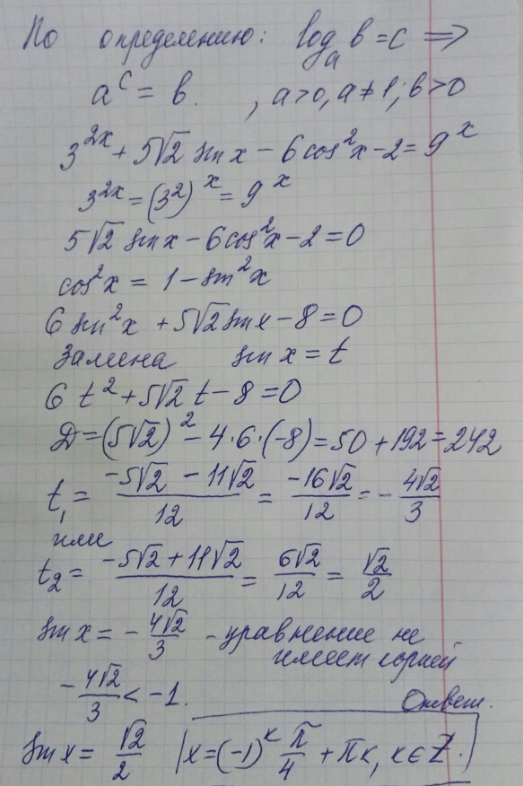 По определению: log_a b = c ⇒
a^c = b. , a>0, a≠1; b>0
3^{2x} + 5√2 sin x − 6cos²x − 2 = 9^x
3^{2x} = (3²)^x = 9^x
5√2 sin x − 6cos²x − 2 = 0
cos²x = 1 − sin²x
6 sin²x + 5√2 sin x − 8 = 0
Замена sin x = t
6 t² + 5√2 t − 8 = 0
D = (5√2)² − 4·6·(−8) = 50 + 192 = 242
t₁ = (−5√2 − 11√2)/12 = (−16√2)/12 = −4√2/3
или
t₂ = (−5√2 + 11√2)/12 = 6√2/12 = √2/2
sin x = −4√2/3 - уравнение не
имеет корней
−4√2/3 < −1.
Ответ.
sin x = √2/2 | x = (−1)^k π/4 + πk, k ∈ Z.